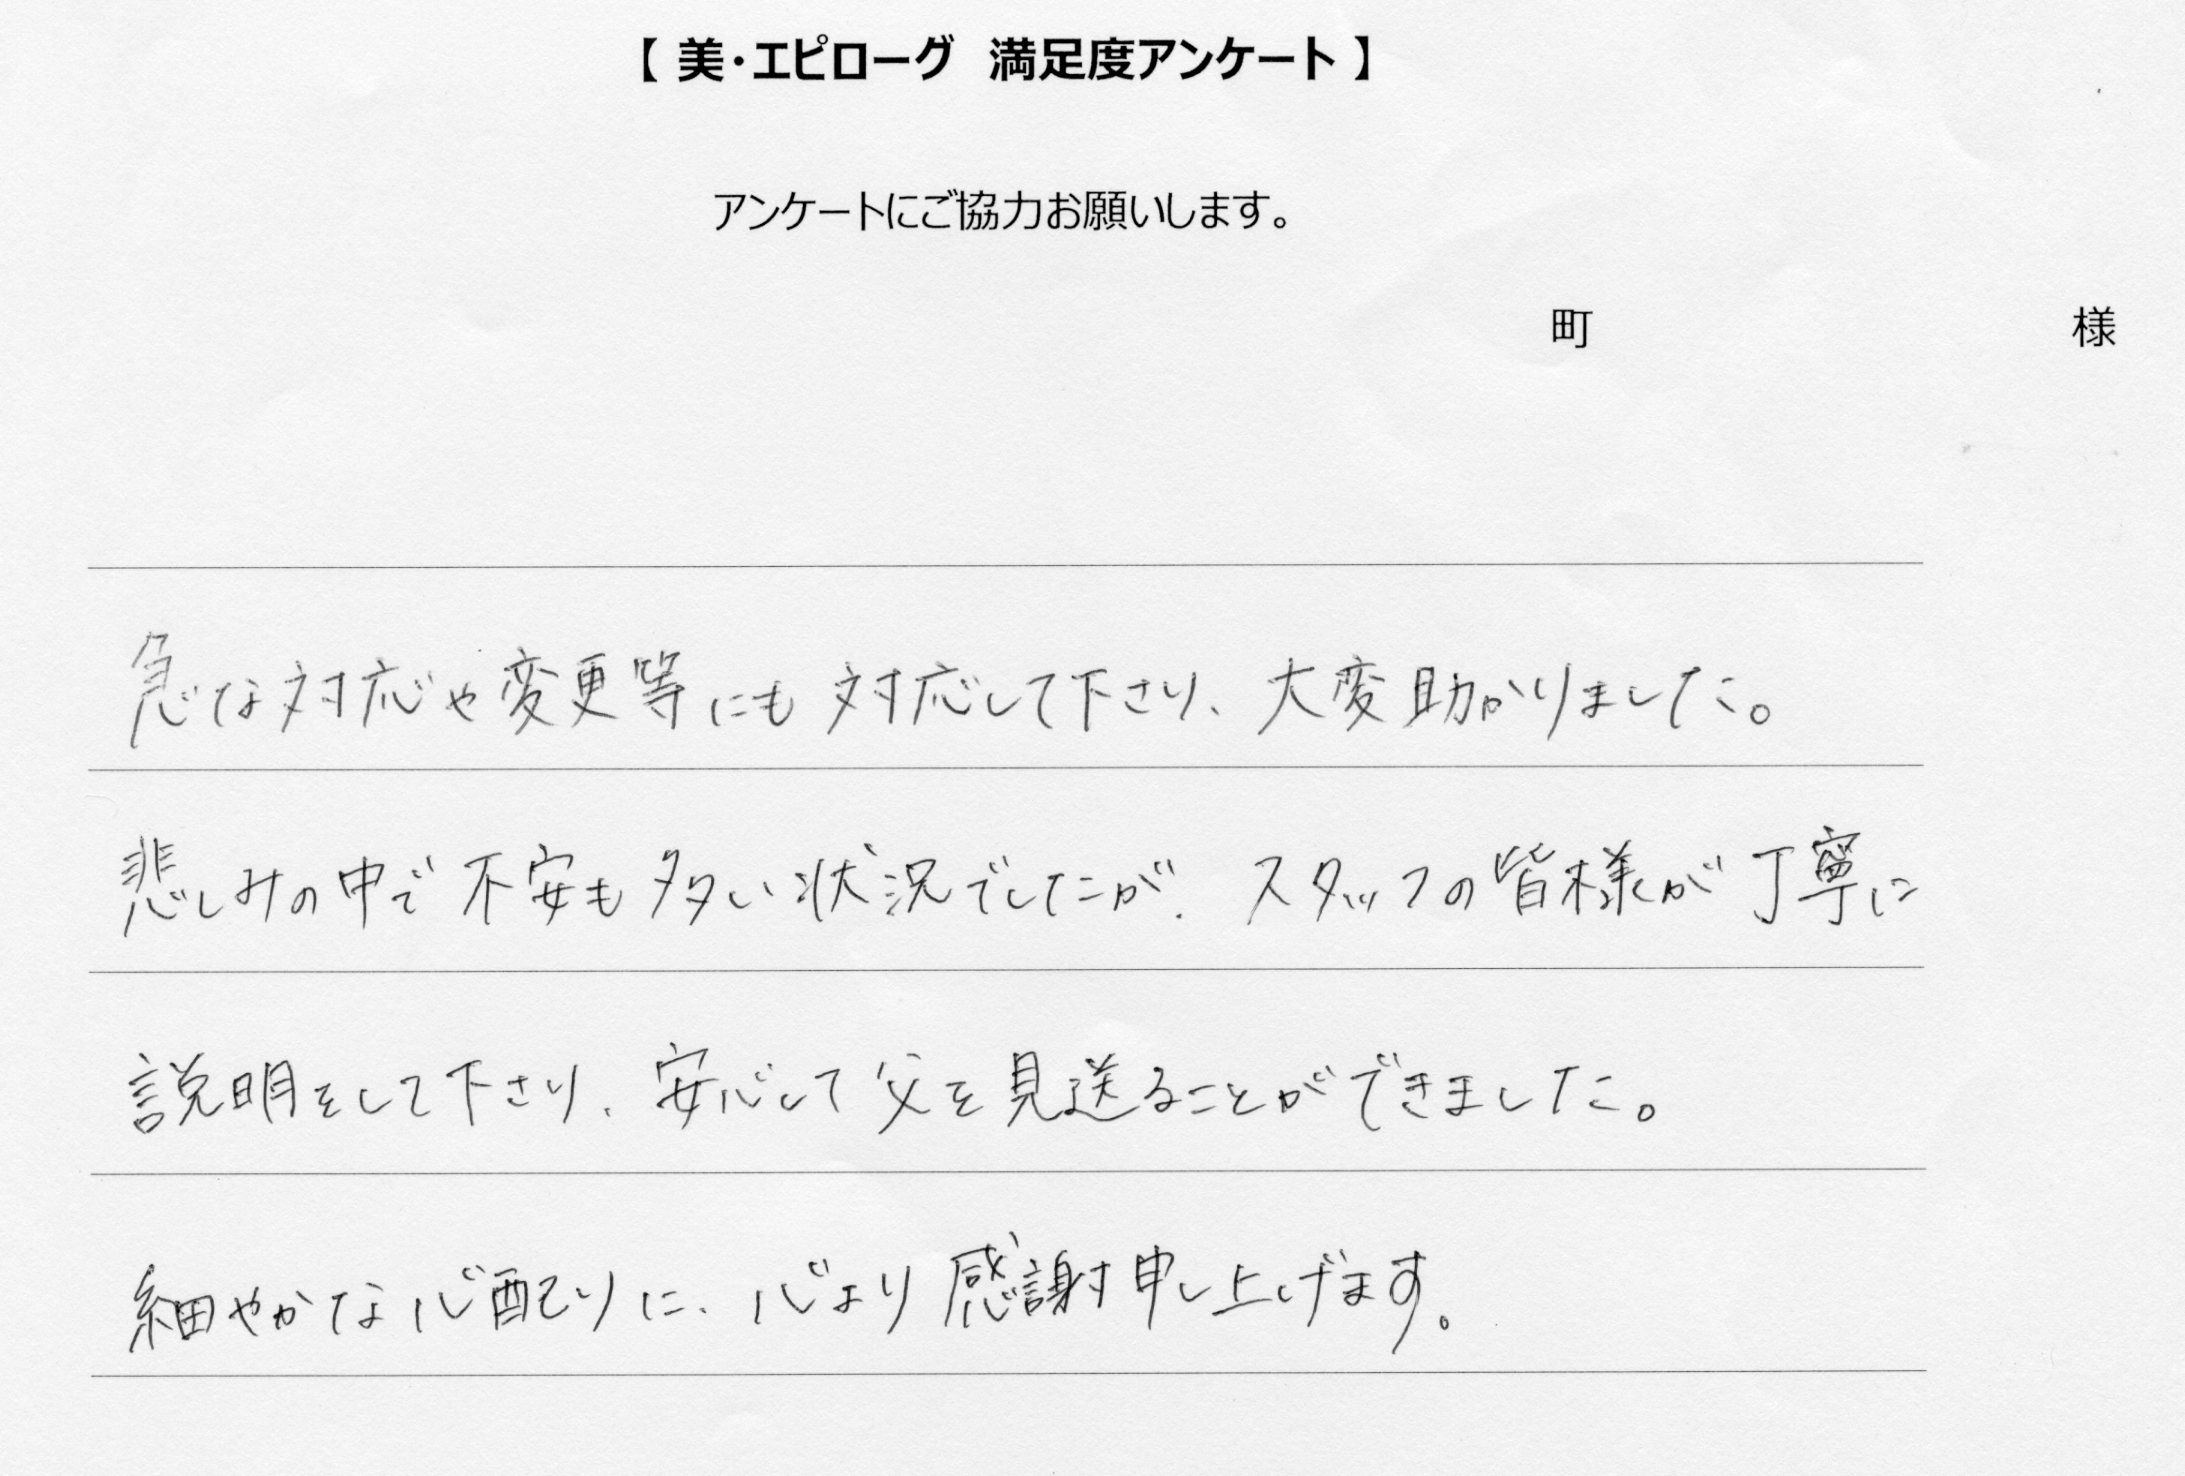 【 美・エピローグ　満足度アンケート 】
アンケートにご協力お願いします。
町　　　　　様
急な対応や変更等にも対応して下さり、大変助かりました。
悲しみの中で不安も多い状況でしたが、スタッフの皆様が丁寧に
説明をして下さり、安心して父を見送ることができました。
細やかな心配りに、心より感謝申し上げます。